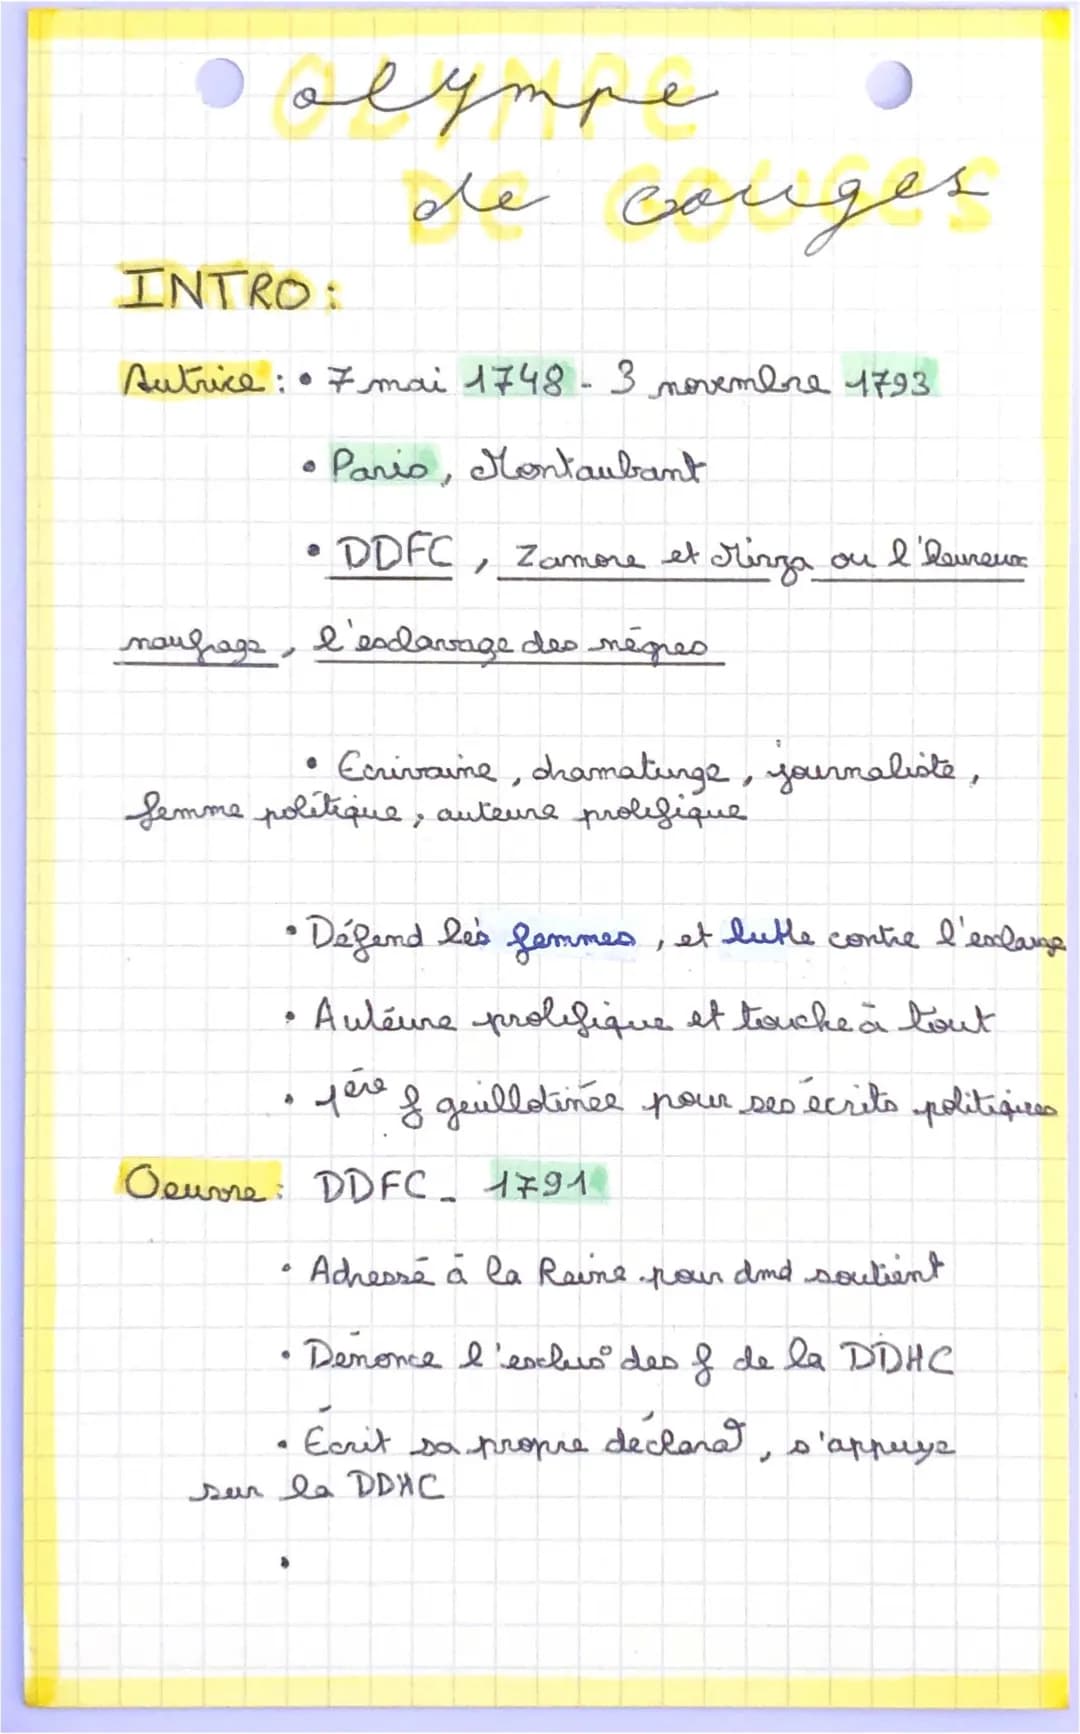 OLYMPE
olympe
DE GOUGES
de Gouges
INTRO :
Autrice : • 7 mai 1748 - 3 novembre 1793
• Paris, Montaubant
• DDFC, Zamore et Mirza ou l'heureux
naufrage, l'esclavage des nègres
• Ecrivaine, dramaturge, journaliste,
femme politique, auteure prolifique
• Défend les femmes, et lutte contre l'esclavage
• Auteure prolifique et touche à tout
• 1ère f guillotinée pour ses écrits politiques
Oeuvre : DDFC - 1791
• Adressé à la Reine pour dmd soutient
• Dénonce l'exclus° des f de la DDHC
• Écrit sa propre déclarat°, s'appuye
sur la DDHC
•